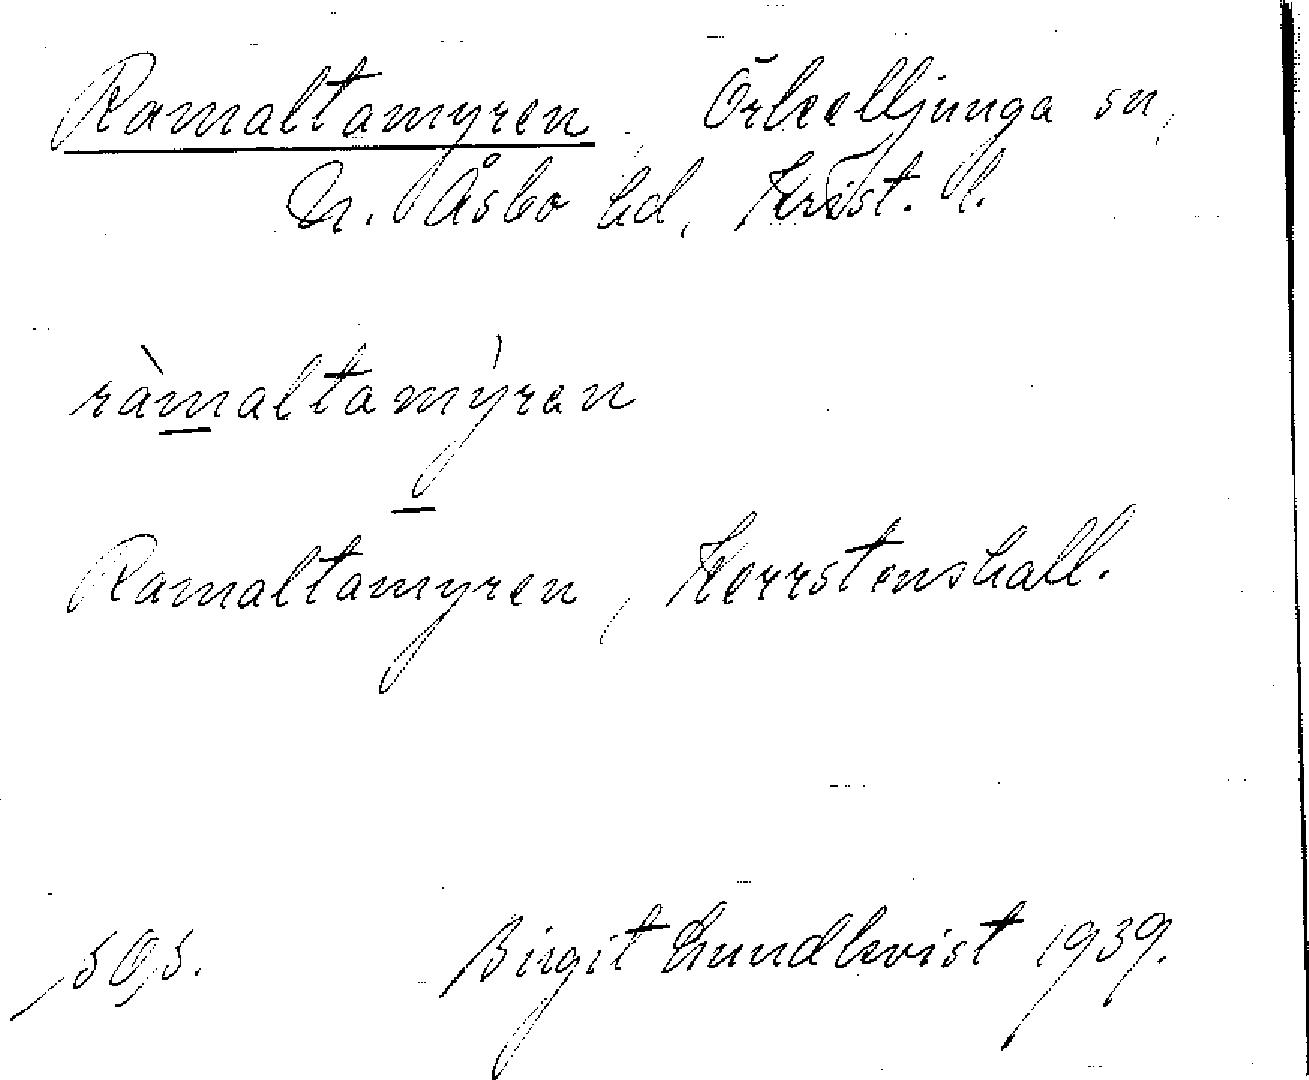 Ramaltamyren, Örkelljunga sn,
N. Åsbo hd, Krist. l.
ràmaltamýren
Ramaltamyren, Kerrstenshall.
Birgit Lundkvist 1939.